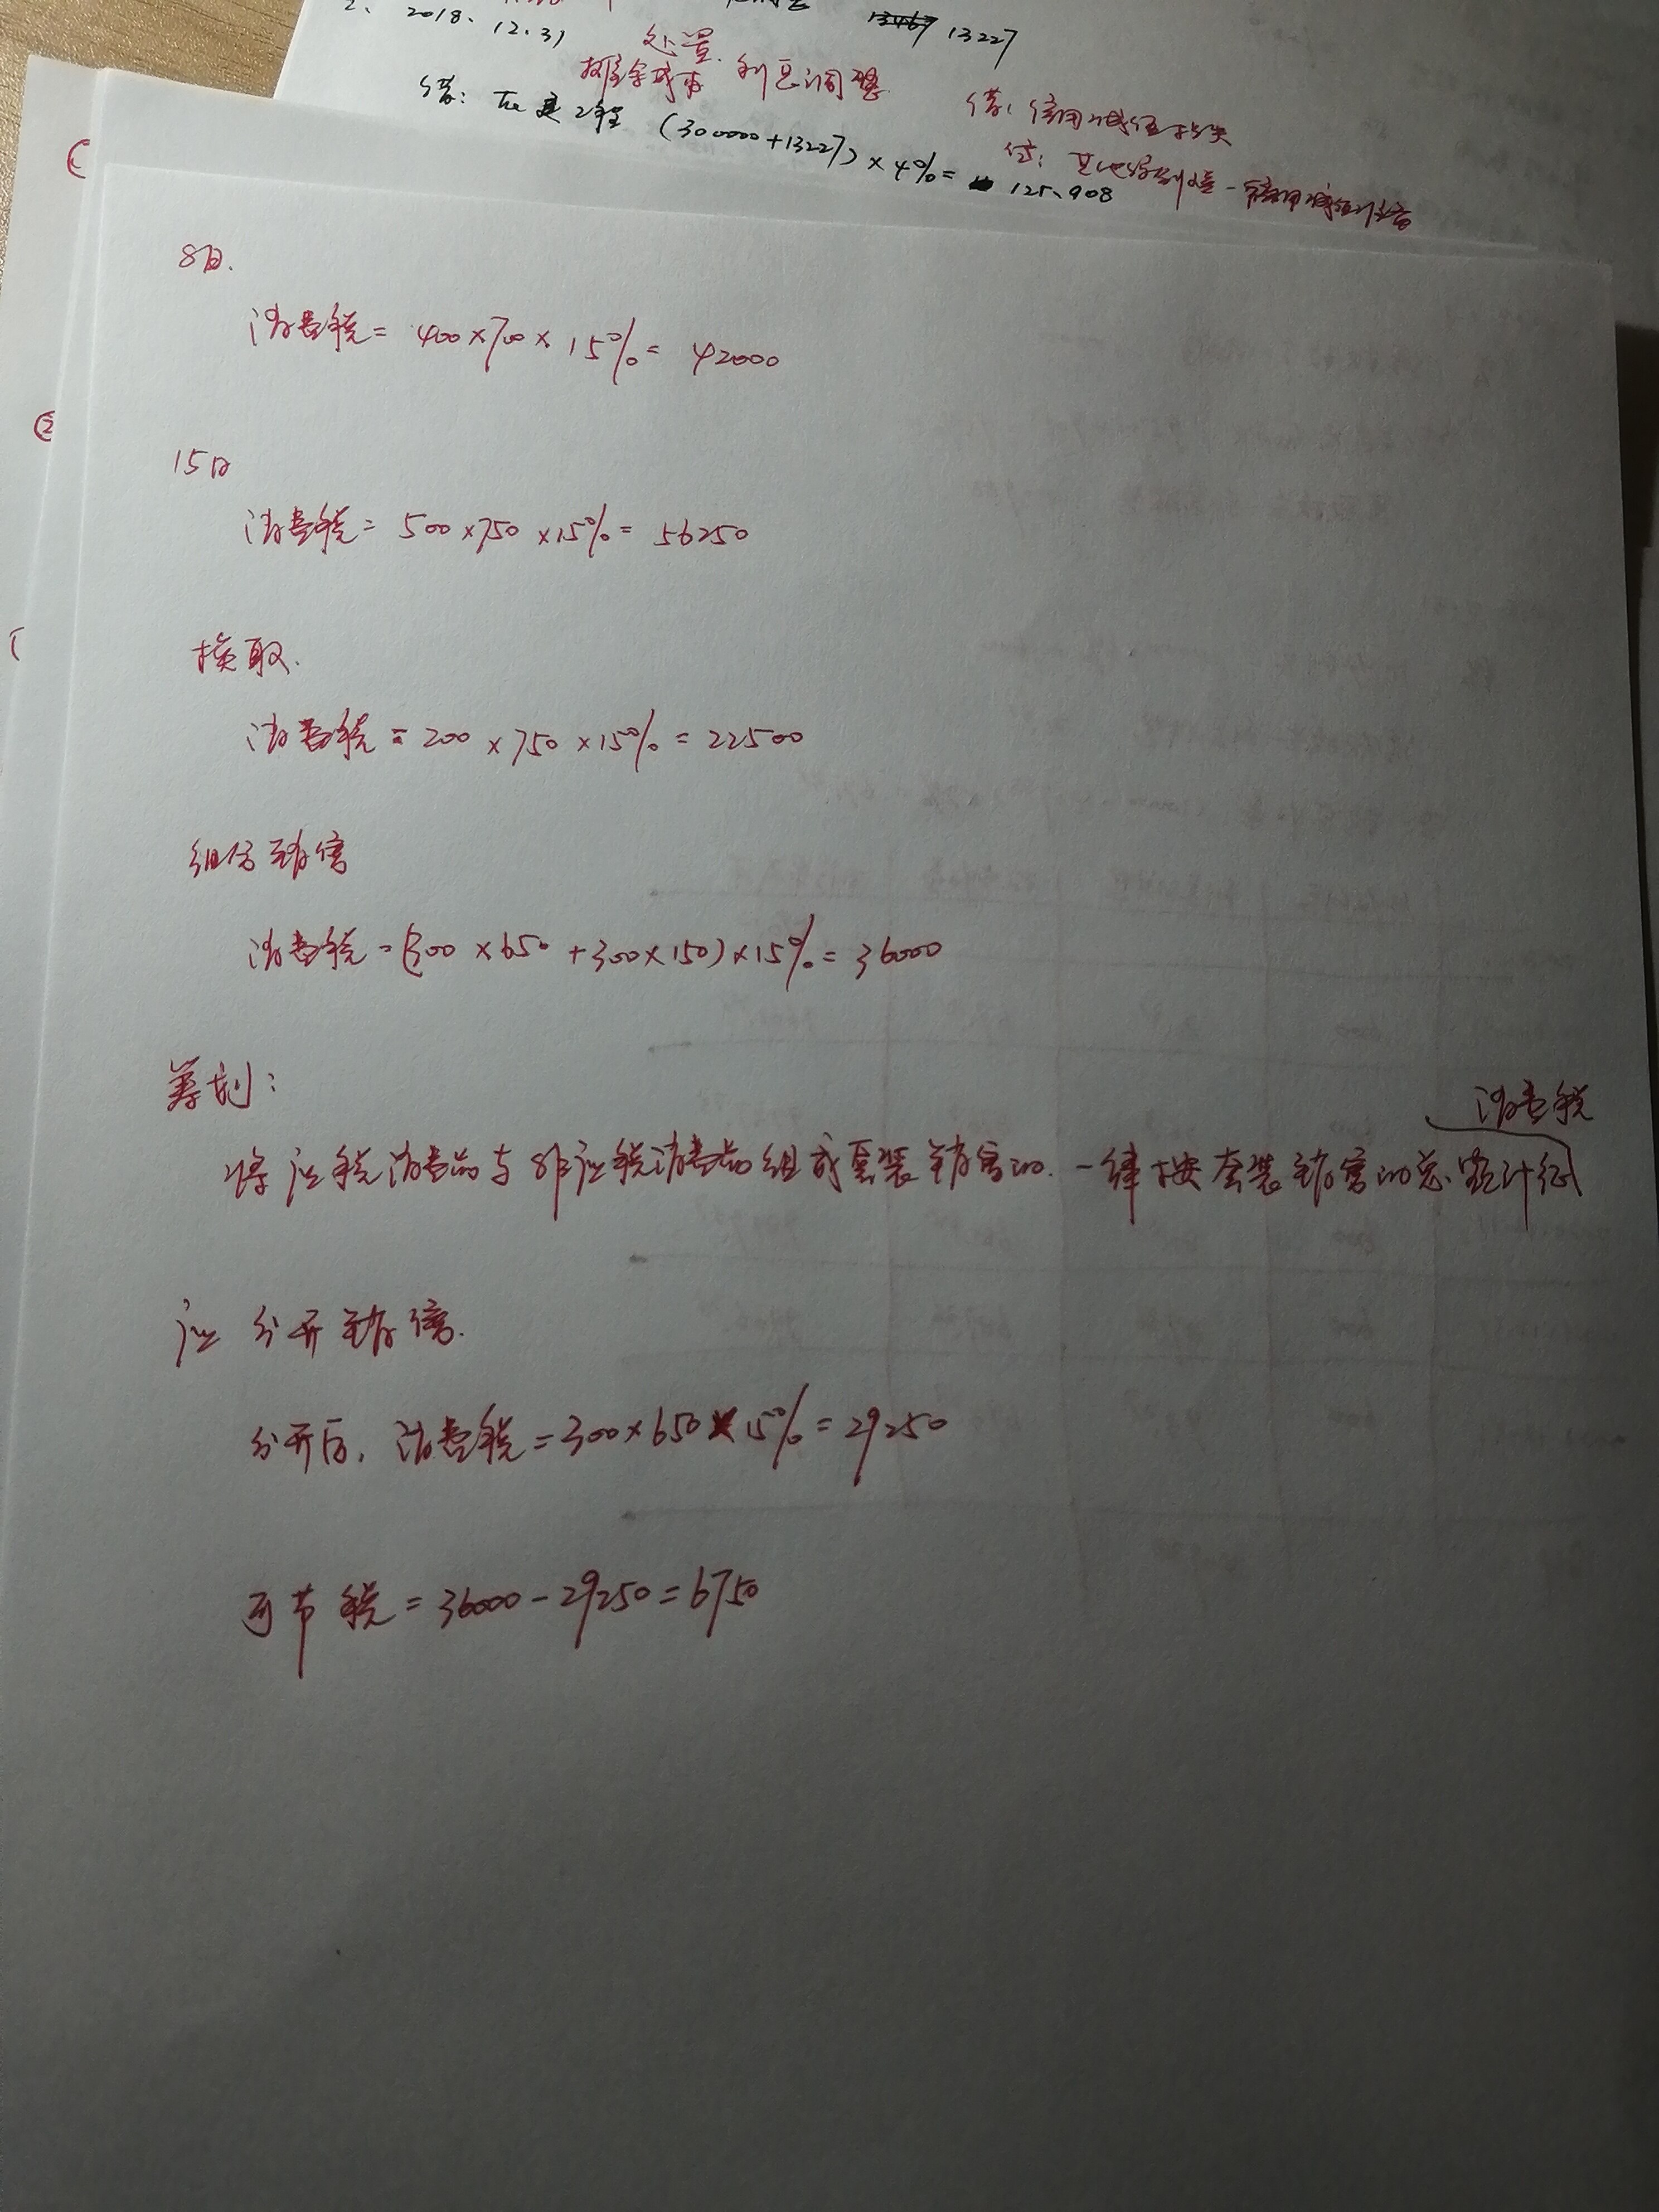 2、2018、12.31
13467 13227
处置
摊余成本 利息调整
借：在建工程 (300000+13227)×4%= 125、908
借：信用减值损失
贷：其他综合收益-信用减值准备
8日.
消费税= 400×700×15%= 42000
15日
消费税= 500×750×15%= 56250
换取.
消费税= 200×750×15%= 22500
组合销售
消费税=(300×650+300×150)×15%= 36000
筹划：
消费税
将应税消费品与非应税消费品组成套装销售的.一律按套装销售的总额计征
应分开销售.
分开后, 消费税=300×650×15%=29250
可节税=36000-29250=6750
②